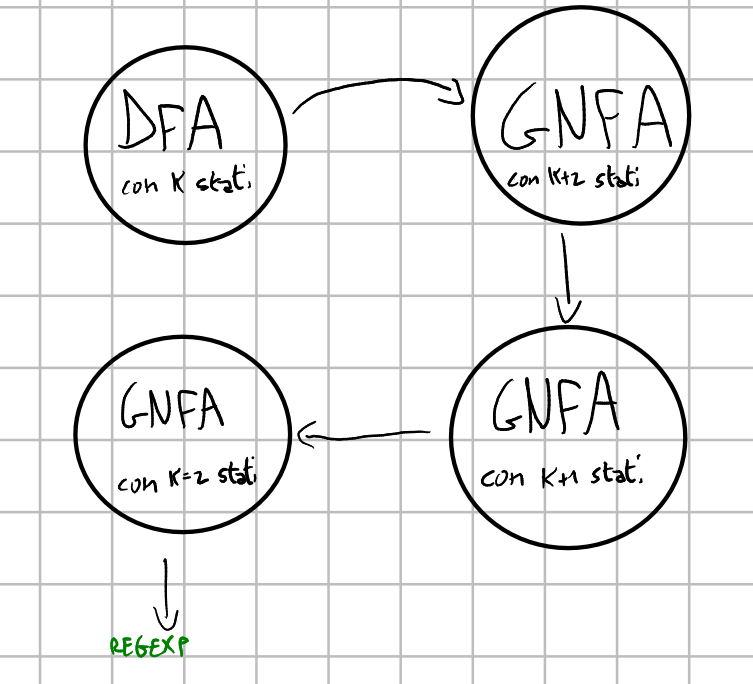 DFA
con K stati
GNFA
con K+2 stati
GNFA
con K+1 stati
GNFA
con K=2 stati
REGEXP